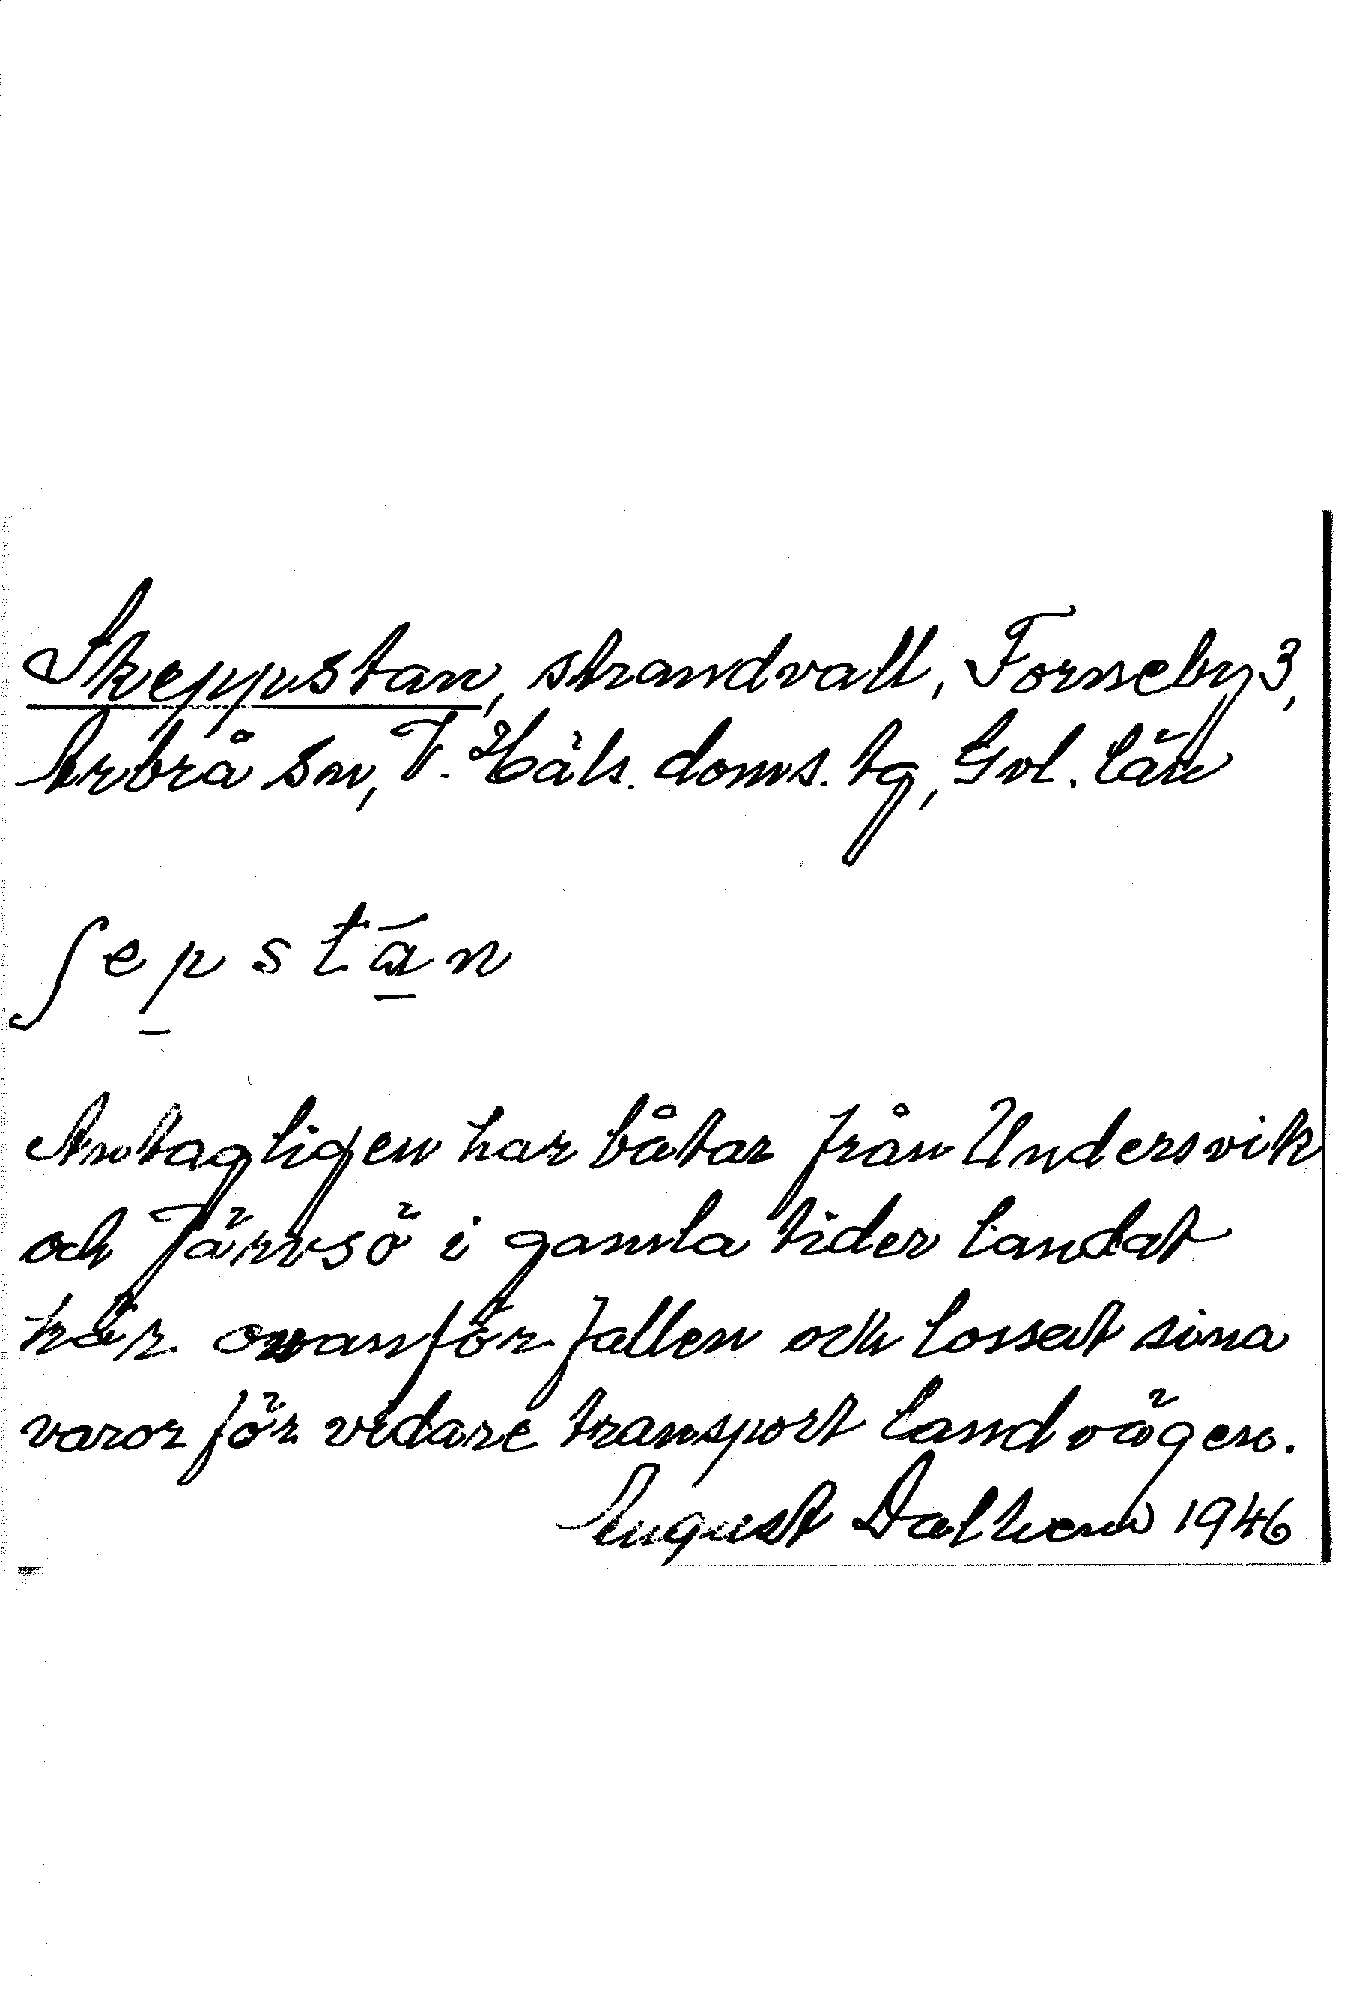 Skeppstan, strandvall, Forneby 3,
Arbrå sn, V. Häls. doms. tg, Gvl. län
ʃepstān
Antagligen har båtar från Undersvik
och Järvsö i gamla tider landat
här ovanför fallen och lossat sina
varor för vidare transport landvägen.
August Dalhem 1946